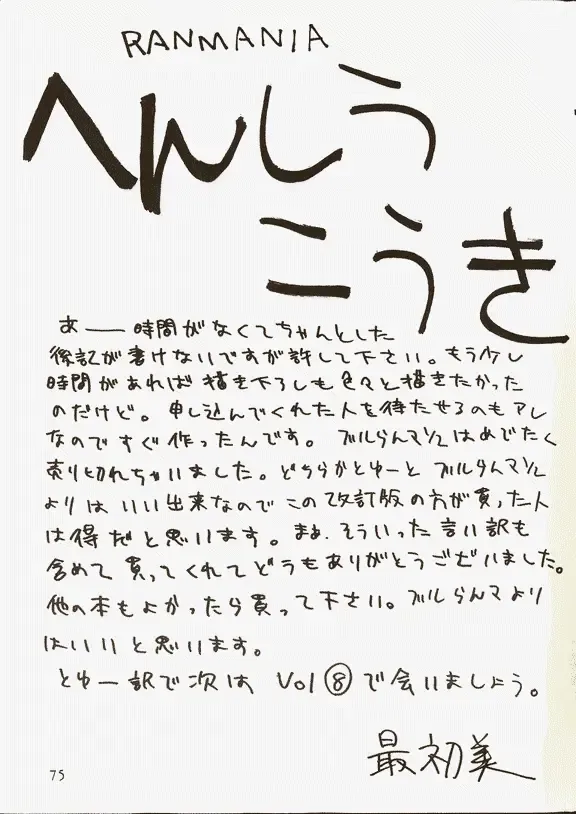 RANMANIA
へんしう
こうき
あ――時間がなくてちゃんとした
後記が書けないですが許して下さい。もう少し
時間があれば描き下ろしも色々と描きたかった
のだけど。申し込んでくれた人を待たせるのもアレ
なのですぐ作ったんです。ブルらんマ1/2はめでたく
売り切れちゃいました。どちらかとゆーとブルらんマ1/2
よりはいい出来なのでこの改訂版の方が買った人
は得だと思います。まぁ、そういった言い訳も
含めて買ってくれてどうもありがとうございました。
他の本もよかったら買って下さい。ブルらんマより
はいいと思います。
とゆー訳で次は Vol⑧で会いましょう。
最初美
75